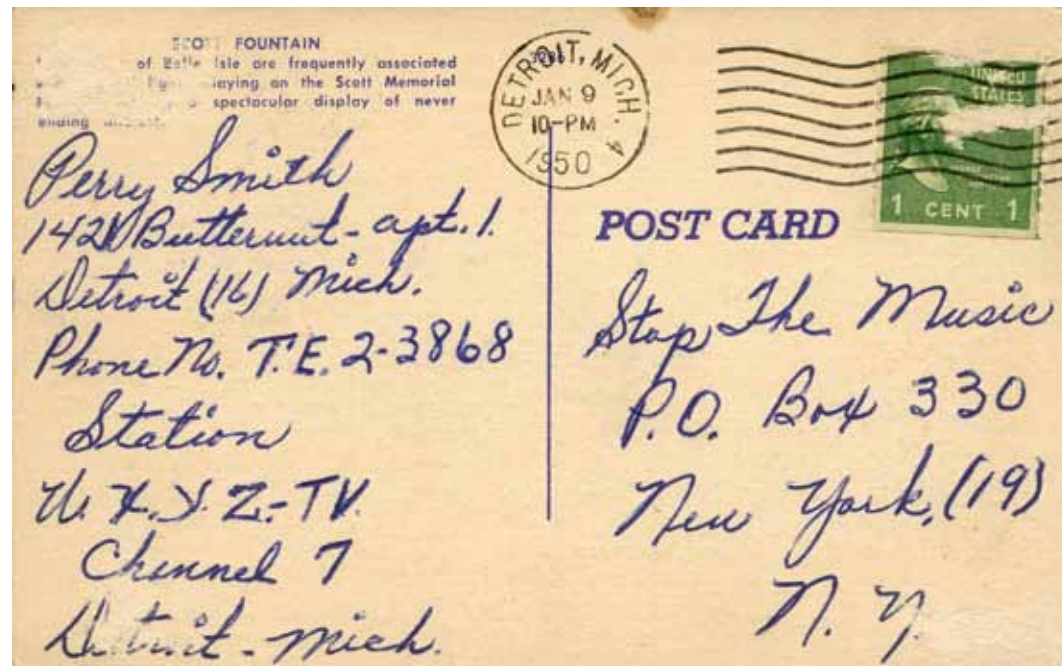 SCOTT FOUNTAIN
of Belle Isle are frequently associated
playing on the Scott Memorial
spectacular display of never
ending
DETROIT, MICH. 4
JAN 9
10-PM
1950
UNITED
STATES
1 CENT 1
POST CARD
Perry Smith
Butternut - apt. 1.
Detroit (16) Mich.
Phone No. T.E. 2-3868
Station
W.X.Y.Z.-TV.
Channel 7
Detroit - Mich.
Stop The Music
P.O. Box 330
New York, (19)
N.Y.